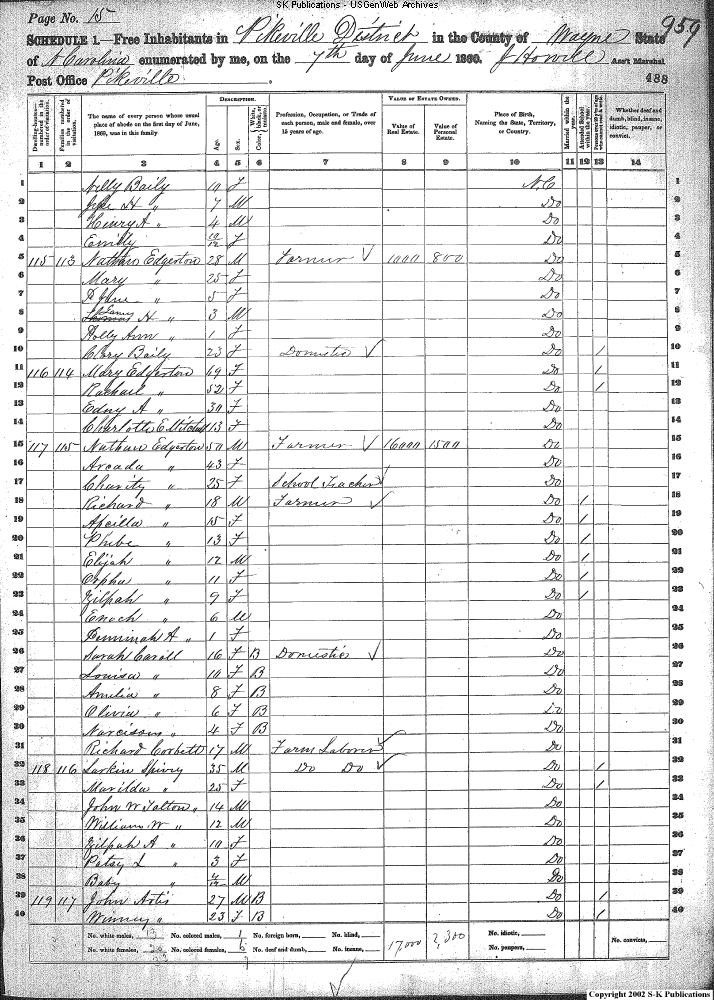 SK Publications - USGenWeb Archives
Page No. 15
959
SCHEDULE 1.—Free Inhabitants in Pikeville District in the County of Wayne State
of N Carolina enumerated by me, on the 7th day of June 1860. J Howell Ass't Marshal
Post Office Pikeville.
488
DESCRIPTION. VALUE OF ESTATE OWNED.
Dwelling-houses numbered in the order of visitation. Families numbered in the order of visitation. The name of every person whose usual place of abode on the first day of June, 1860, was in this family Age. Sex. Color, Profession, Occupation, or Trade of each person, male and female, over 15 years of age. Value of Real Estate. Value of Personal Estate. Place of Birth, Naming the State, Territory, or Country. Married within the year. Attended School within the year. Whether deaf and dumb, blind, insane, idiotic, pauper, or convict.
1 2 3 4 5 6 7 8 9 10 11 12 13 14
1 Nelly Baily 10 F N.C 1
2 H " 7 M Do 2
3 Henry A " 4 M Do 3
4 Emily 10/12 F Do 4
5 115 113 Nathan Edgerton 28 M Farmer 1000 800 Do 5
6 Mary " 25 F Do 6
7 Jane " 5 F Do 7
8 H " 3 M Do 8
9 Holly Ann " 1 F Do 9
10 Baily 23 F Domestic Do / 10
11 116 114 Mary Edgerton 69 F Do / 11
12 Rachael " 52 F Do / 12
13 Edny A " 30 F Do 13
14 Charlotte E Mitchel 13 F Do 14
15 117 115 Nathan Edgerton 50 M Farmer 16000 1500 Do 15
16 Arcada " 43 F Do 16
17 Charity " 25 F School Teacher Do 17
18 Richard " 18 M Farmer Do / 18
19 Apcilla " 15 F Do / 19
20 Phibe " 13 F Do / 20
21 Elijah " 12 M Do / 21
22 Orpha " 11 F Do / 22
23 Zilpah " 9 F Do / 23
24 Enoch " 6 M Do 24
25 A " 1 F Do 25
26 Sarah Caroll 16 F B Domestic Do 26
27 Louisa " 10 F B Do 27
28 Amelia " 8 F B Do 28
29 Olivia " 6 F B Do 29
30 Narcissus " 4 F B Do 30
31 Richard Corbett 17 M Farm Laborer Do 31
32 118 116 Larkin Spivy 35 M Do Do Do / 32
33 Marilda " 25 F Do / 33
34 John W Talton " 14 M Do 34
35 William W " 12 M Do 35
36 Zilpah A " 10 F Do 36
37 Patsy L " 3 F Do 37
38 Baby " 4/12 M Do 38
39 119 117 John Artis 27 M B Do / 39
40 Winney " 23 F B Do / 40
No. white males, 13 No. colored males, 1 No. foreign born, No. blind, 17,000 2,300 No. idiotic, No. convicts,
No. white females, No. colored females, 6 No. deaf and dumb, No. insane, No. paupers,
Copyright 2002 S-K Publications